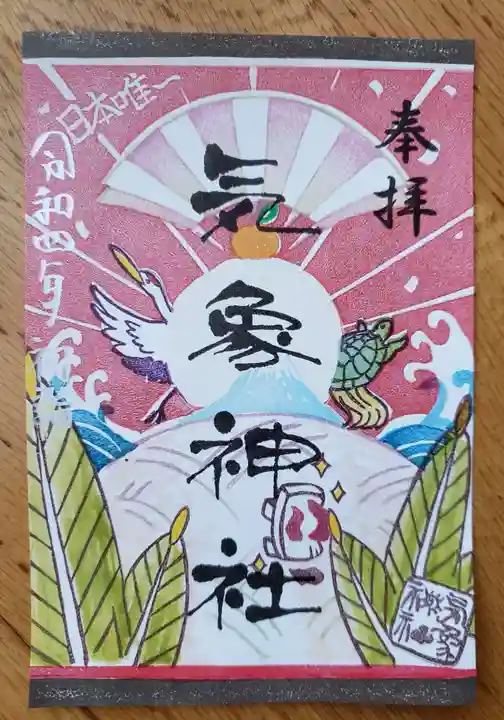 奉拝
気象神社
日本唯一
令和四年
氣象
神社